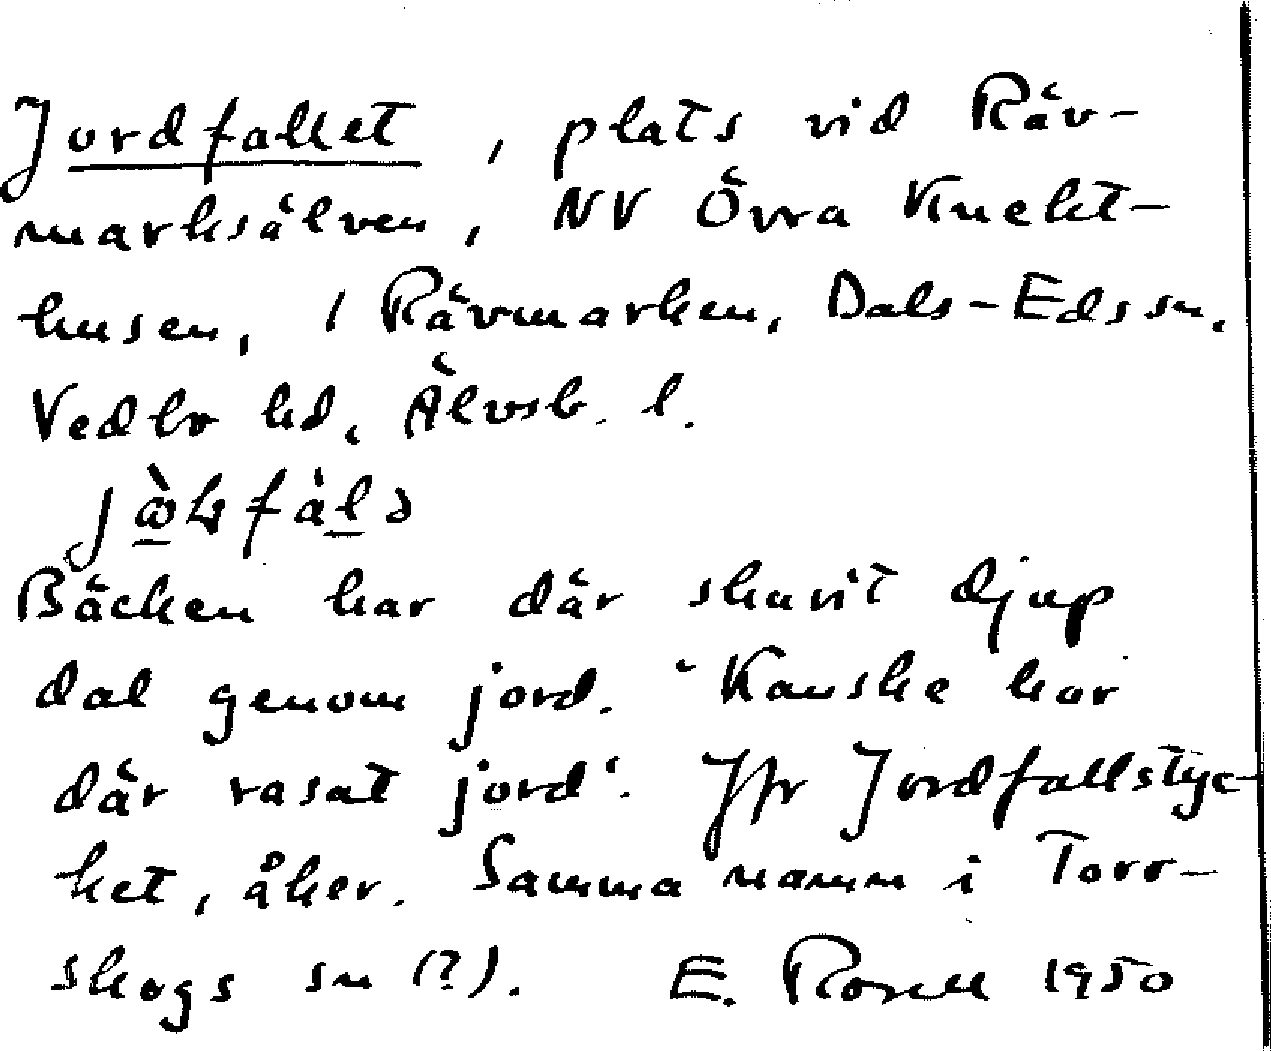 Jordfallet, plats vid Räv-
marksälven, NV Övra Knekt-
husen, i Rävmarken, Dals-Eds sn.
Vedbo hd, Älvsb. l.
Bäcken har där skurit djup
dal genom jord. "Kanske har
där rasat jord". Jfr Jordfallstyc-
ket, åker. Samma namn i Torr-
skogs sn (?). E. Rosell 1950